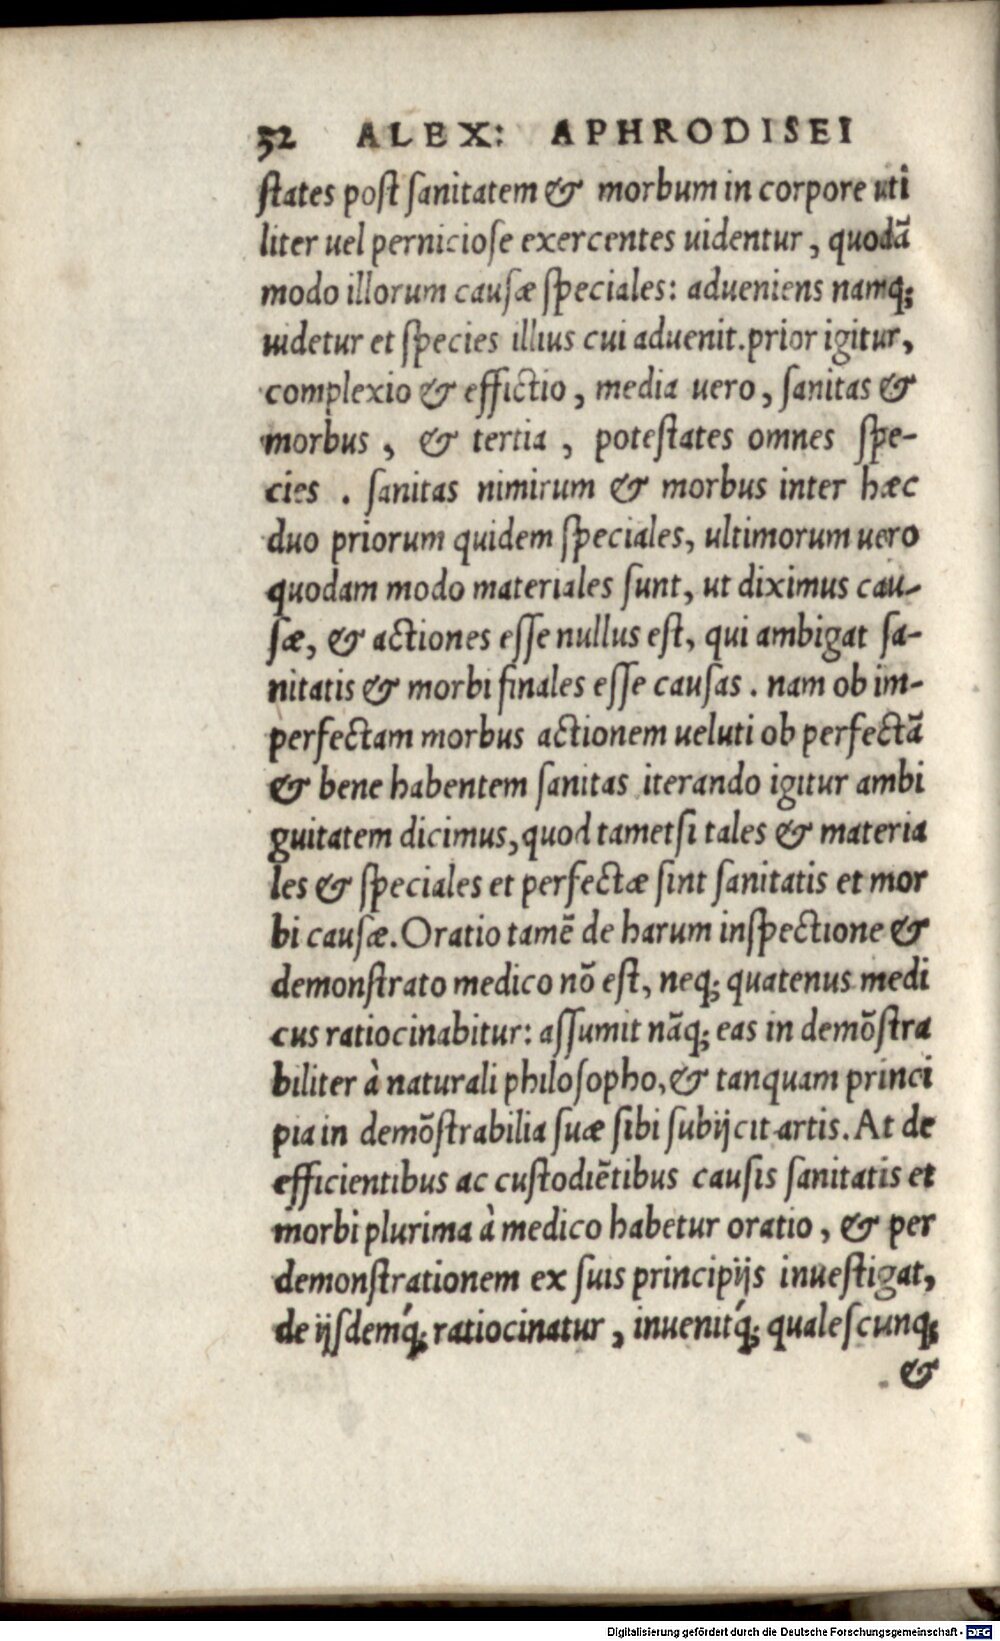 52 ALEX: APHRODISEI
ſtates poſt ſanitatem & morbum in corpore uti
liter uel pernicioſe exercentes uidentur, quodā
modo illorum cauſæ ſpeciales: adueniens namq;
uidetur et ſpecies illius cui aduenit. prior igitur,
complexio & effictio, media uero, ſanitas &
morbus, & tertia, poteſtates omnes ſpe-
cies. ſanitas nimirum & morbus inter hæc
duo priorum quidem ſpeciales, ultimorum uero
quodam modo materiales ſunt, ut diximus cau-
ſæ, & actiones eſſe nullus eſt, qui ambigat ſa-
nitatis & morbi finales eſſe cauſas. nam ob im-
perfectam morbus actionem ueluti ob perfectā
& bene habentem ſanitas iterando igitur ambi
guitatem dicimus, quod tametſi tales & materia
les & ſpeciales et perfectæ ſint ſanitatis et mor
bi cauſæ. Oratio tamē de harum inſpectione &
demonſtrato medico nō eſt, neq; quatenus medi
cus ratiocinabitur: aſſumit nāq; eas in demōſtra
biliter à naturali philoſopho, & tanquam princi
pia in demōſtrabilia ſuæ ſibi ſubijcit artis. At de
efficientibus ac cuſtodiētibus cauſis ſanitatis et
morbi plurima à medico habetur oratio, & per
demonſtrationem ex ſuis principijs inueſtigat,
de ijſdemq́; ratiocinatur, inuenitq́; qualeſcunq;
&
Digitalisierung gefördert durch die Deutsche Forschungsgemeinschaft - DFG